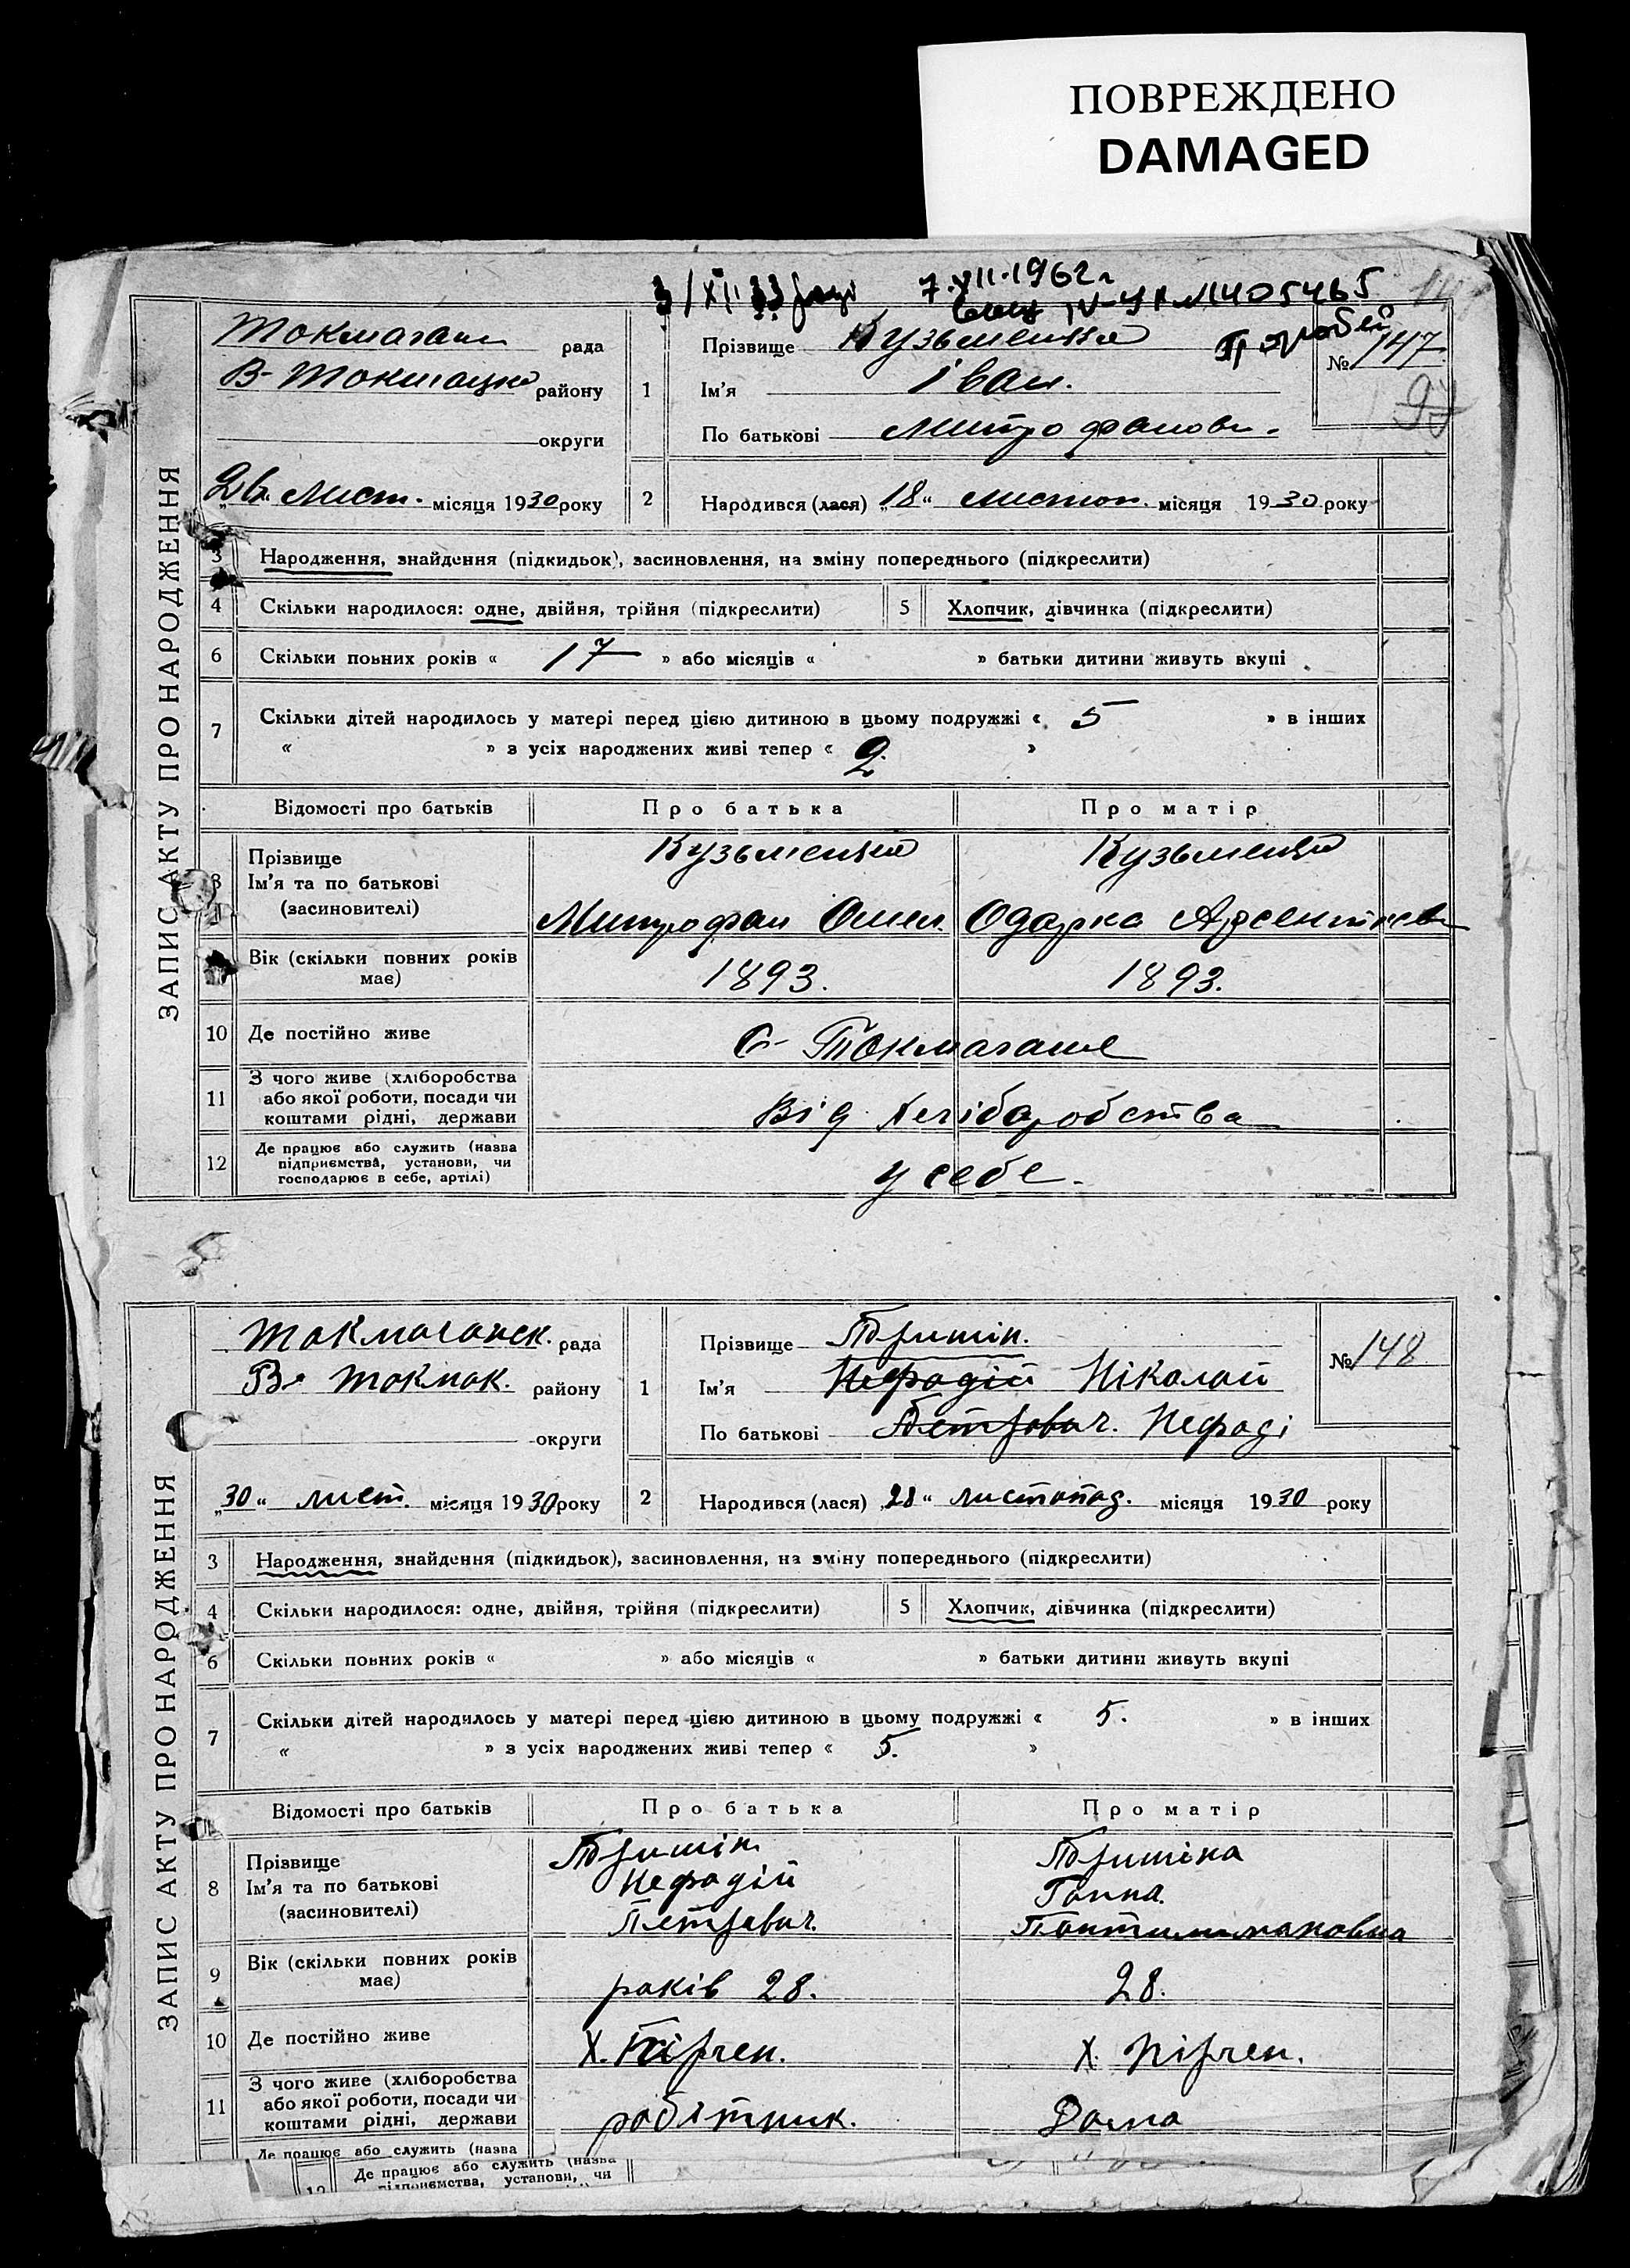 ПОВРЕЖДЕНО
DAMAGED
7.XII.1962г
ЗАПИС АКТУ ПРО НАРОДЖЕННЯ
рада
В- Токмацько району
округи
1
Прізвище Кузьменко
Ім'я Іван.
По батькові Митрофанов.
№ 147
Лист. місяця 1930 року
2
Народився (лася) „18“ листоп. місяця 1930 року
3 Народження, знайдення (підкидьок), засиновлення, на зміну попереднього (підкреслити)
4 Скільки народилося: одне, двійня, трійня (підкреслити)
5 Хлопчик, дівчинка (підкреслити)
6 Скільки повних років « 17 » або місяців « » батьки дитини живуть вкупі
7 Скільки дітей народилось у матері перед цією дитиною в цьому подружжі « 5 » в інших
« » з усіх народжених живі тепер « 2 »
Відомості про батьків Про батька Про матір
8 Прізвище Кузьменко Кузьменко
Ім'я та по батькові
(засиновителі) Митрофан Омел. Одарка Арсентієв
Вік (скільки повних років
має) 1893. 1893.
10 Де постійно живе
11 З чого живе (хліборобства
або якої роботи, посади чи
коштами рідні, держави Від хліборобства
12 Де працює або служить (назва
підприємства, установи, чи
господарює в себе, артілі) у себе.
ЗАПИС АКТУ ПРО НАРОДЖЕННЯ
рада
В. Токмак. району
округи
1
Прізвище
Ім'я Нефодій Ніколай
По батькові Петрович. Нефоді
№ 148
„30“ лист. місяця 1930 року
2
Народився (лася) „28“ листопад. місяця 1930 року
3 Народження, знайдення (підкидьок), засиновлення, на зміну попереднього (підкреслити)
4 Скільки народилося: одне, двійня, трійня (підкреслити)
5 Хлопчик, дівчинка (підкреслити)
6 Скільки повних років « » або місяців « » батьки дитини живуть вкупі
7 Скільки дітей народилось у матері перед цією дитиною в цьому подружжі « 5. » в інших
« » з усіх народжених живі тепер « 5. »
Відомості про батьків Про батька Про матір
8 Прізвище
Ім'я та по батькові Нефодій Ганна.
(засиновителі) Петрович.
9 Вік (скільки повних років
має) років 28. 28.
10 Де постійно живе
11 З чого живе (хліборобства
або якої роботи, посади чи
коштами рідні, держави робітник. Дома
Де працює або служить (назва
12 Де працює або служить (назва
підприємства, установи, чи